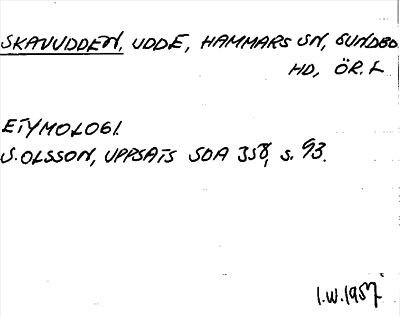 SKAVUDDEN, UDDE, HAMMARS SN, SUNDBO
HD, ÖR. L
ETYMOLOGI.
S. OLSSON, UPPSATS SOA 358, s. 93.
I.W. 1957.